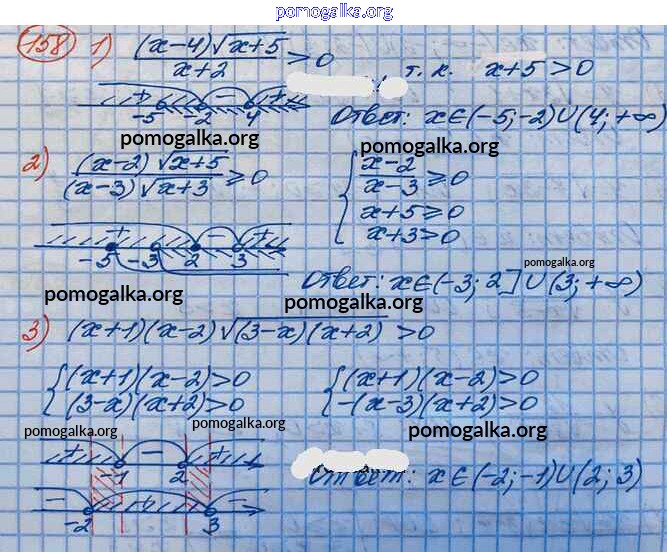 pomogalka.org
158 1) (x-4)√x+5 / x+2 > 0 т. к. x+5 > 0
+ - + -5 -2 4
Ответ: x∈(-5;-2)∪(4;+∞)
pomogalka.org pomogalka.org
2) (x-2)√x+5 / (x-3)√x+3 ⩾ 0
{ x-2 / x-3 ⩾ 0
x+5 ⩾ 0
x+3 > 0
+ - + -5 -3 2 3
pomogalka.org
Ответ: x∈(-3; 2]∪(3;+∞)
pomogalka.org pomogalka.org
3) (x+1)(x-2)√(3-x)(x+2) > 0
{ (x+1)(x-2)>0
(3-x)(x+2)>0
{ (x+1)(x-2)>0
-(x-3)(x+2)>0
pomogalka.org pomogalka.org
+ - + -1 2
Ответ: x∈(-2;-1)∪(2; 3)
- + - -2 3
pomogalka.org